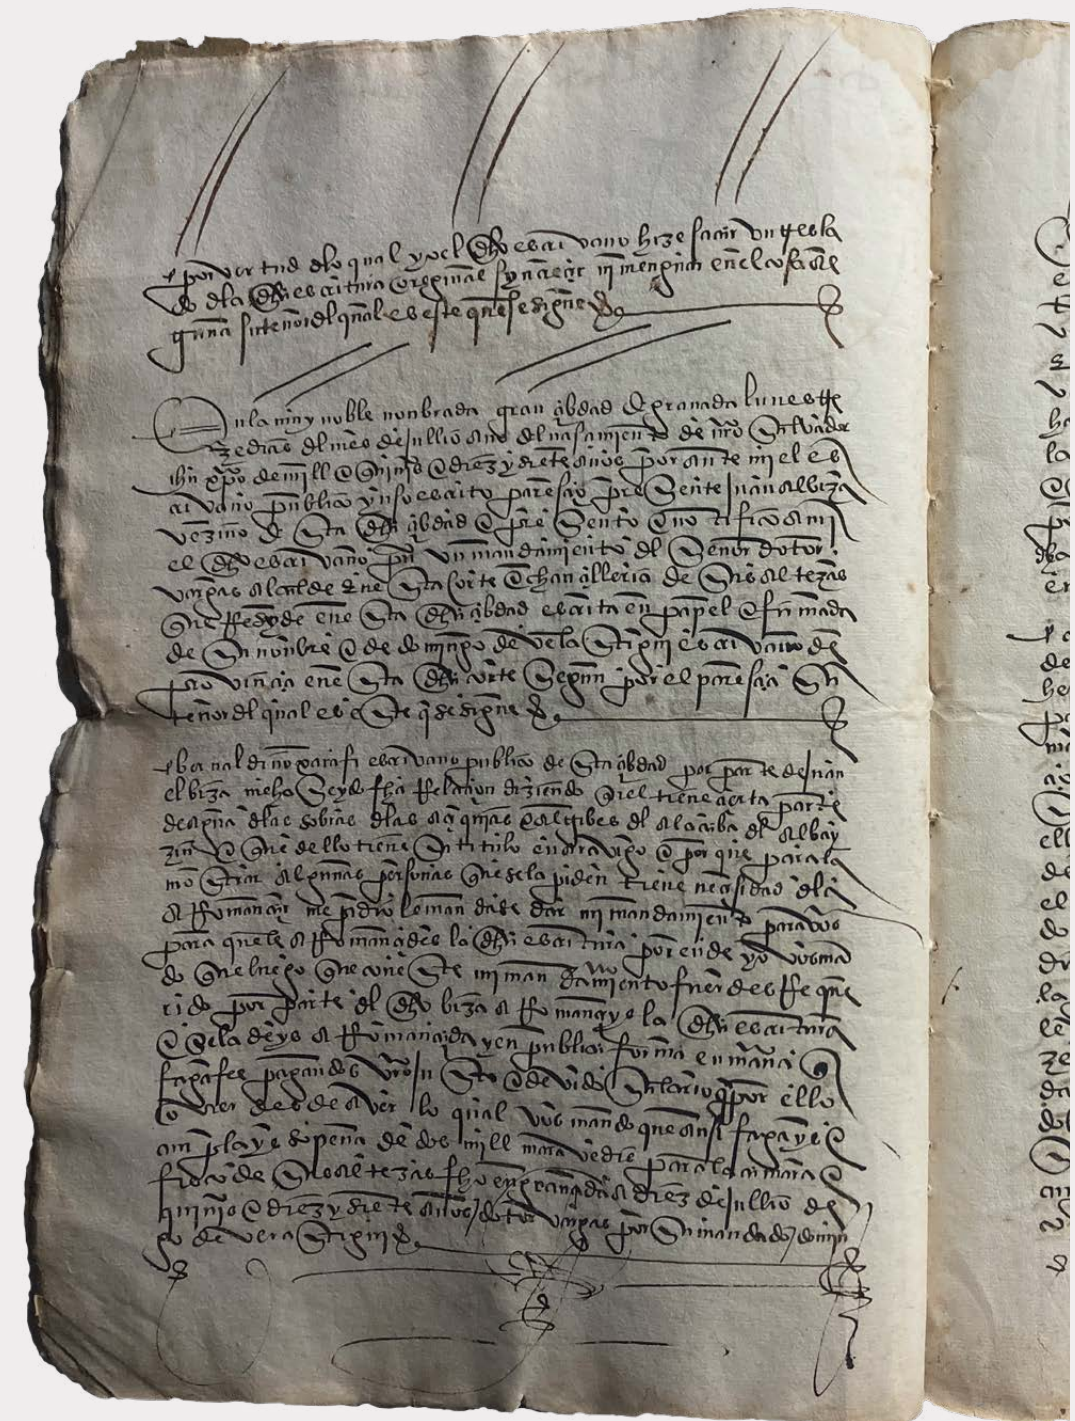 e por vertud dlo qual yo el dho escriuano hize sacar un tresla
do dla dha escritura oreginal syn acreçentar ni menguar en ella cosa al
guna su tenor dl qual es este que se sigue
En la muy noble nonbrada gran çibdad de granada lunes tre
ze dias dl mes de jullio año dl nasçimiento de nro Saluador
ihu xpo de mill e quis e diez y siete años por ante mi el es
criuano publico ynfraescrito paresçio presente juan albizã
vezino de sta dha çibdad e presento e notifico a mi
el dho escriuano pu un mandamiento dl Señor dotor
vargas alcalde en sta corte e chançilleria de sus altezas
que Resyde en sta dha çibdad escrita en papel e firmada
de su nonbre e de domingo de vera escriuano de
prouinçia en esta dha corte Segun por el paresçia Su
tenor dl qual es este q se sigue
escriuano publico de sta çibdad por parte de juan
el biza me ha Seydo fha Relaçion diziendo que el tiene çierta parte
de agua dlas sobras dlas açequias e algibes dl alcaçaba dl albay
zin e que dello tiene Su titulo en arauigo e por que para la
mostrar algunas personas que se la piden tiene neçesidad dla
a Romançar me pidio le mandase dar mi mandamiento para vos
para que le a Romançases la dha escritura por ende yo vos man
do que luego que con este mi mandamiento fuerdes Reque
rido por parte dl dho biza a Romançeys la dha escritura
e se la deys a Romançada y en publica forma en manera q
faga fee pagandos vro justo e deuido Salario q por ello
ouierdes de aver lo qual vos mando que ansi fagays e
cunplays so pena de dos mill marauedis para la camara e
fisco de Sus altezas fho en granada a diez de jullio de
quis e diez y siete años / dotor vargas por Su mandado / domin
go de vera